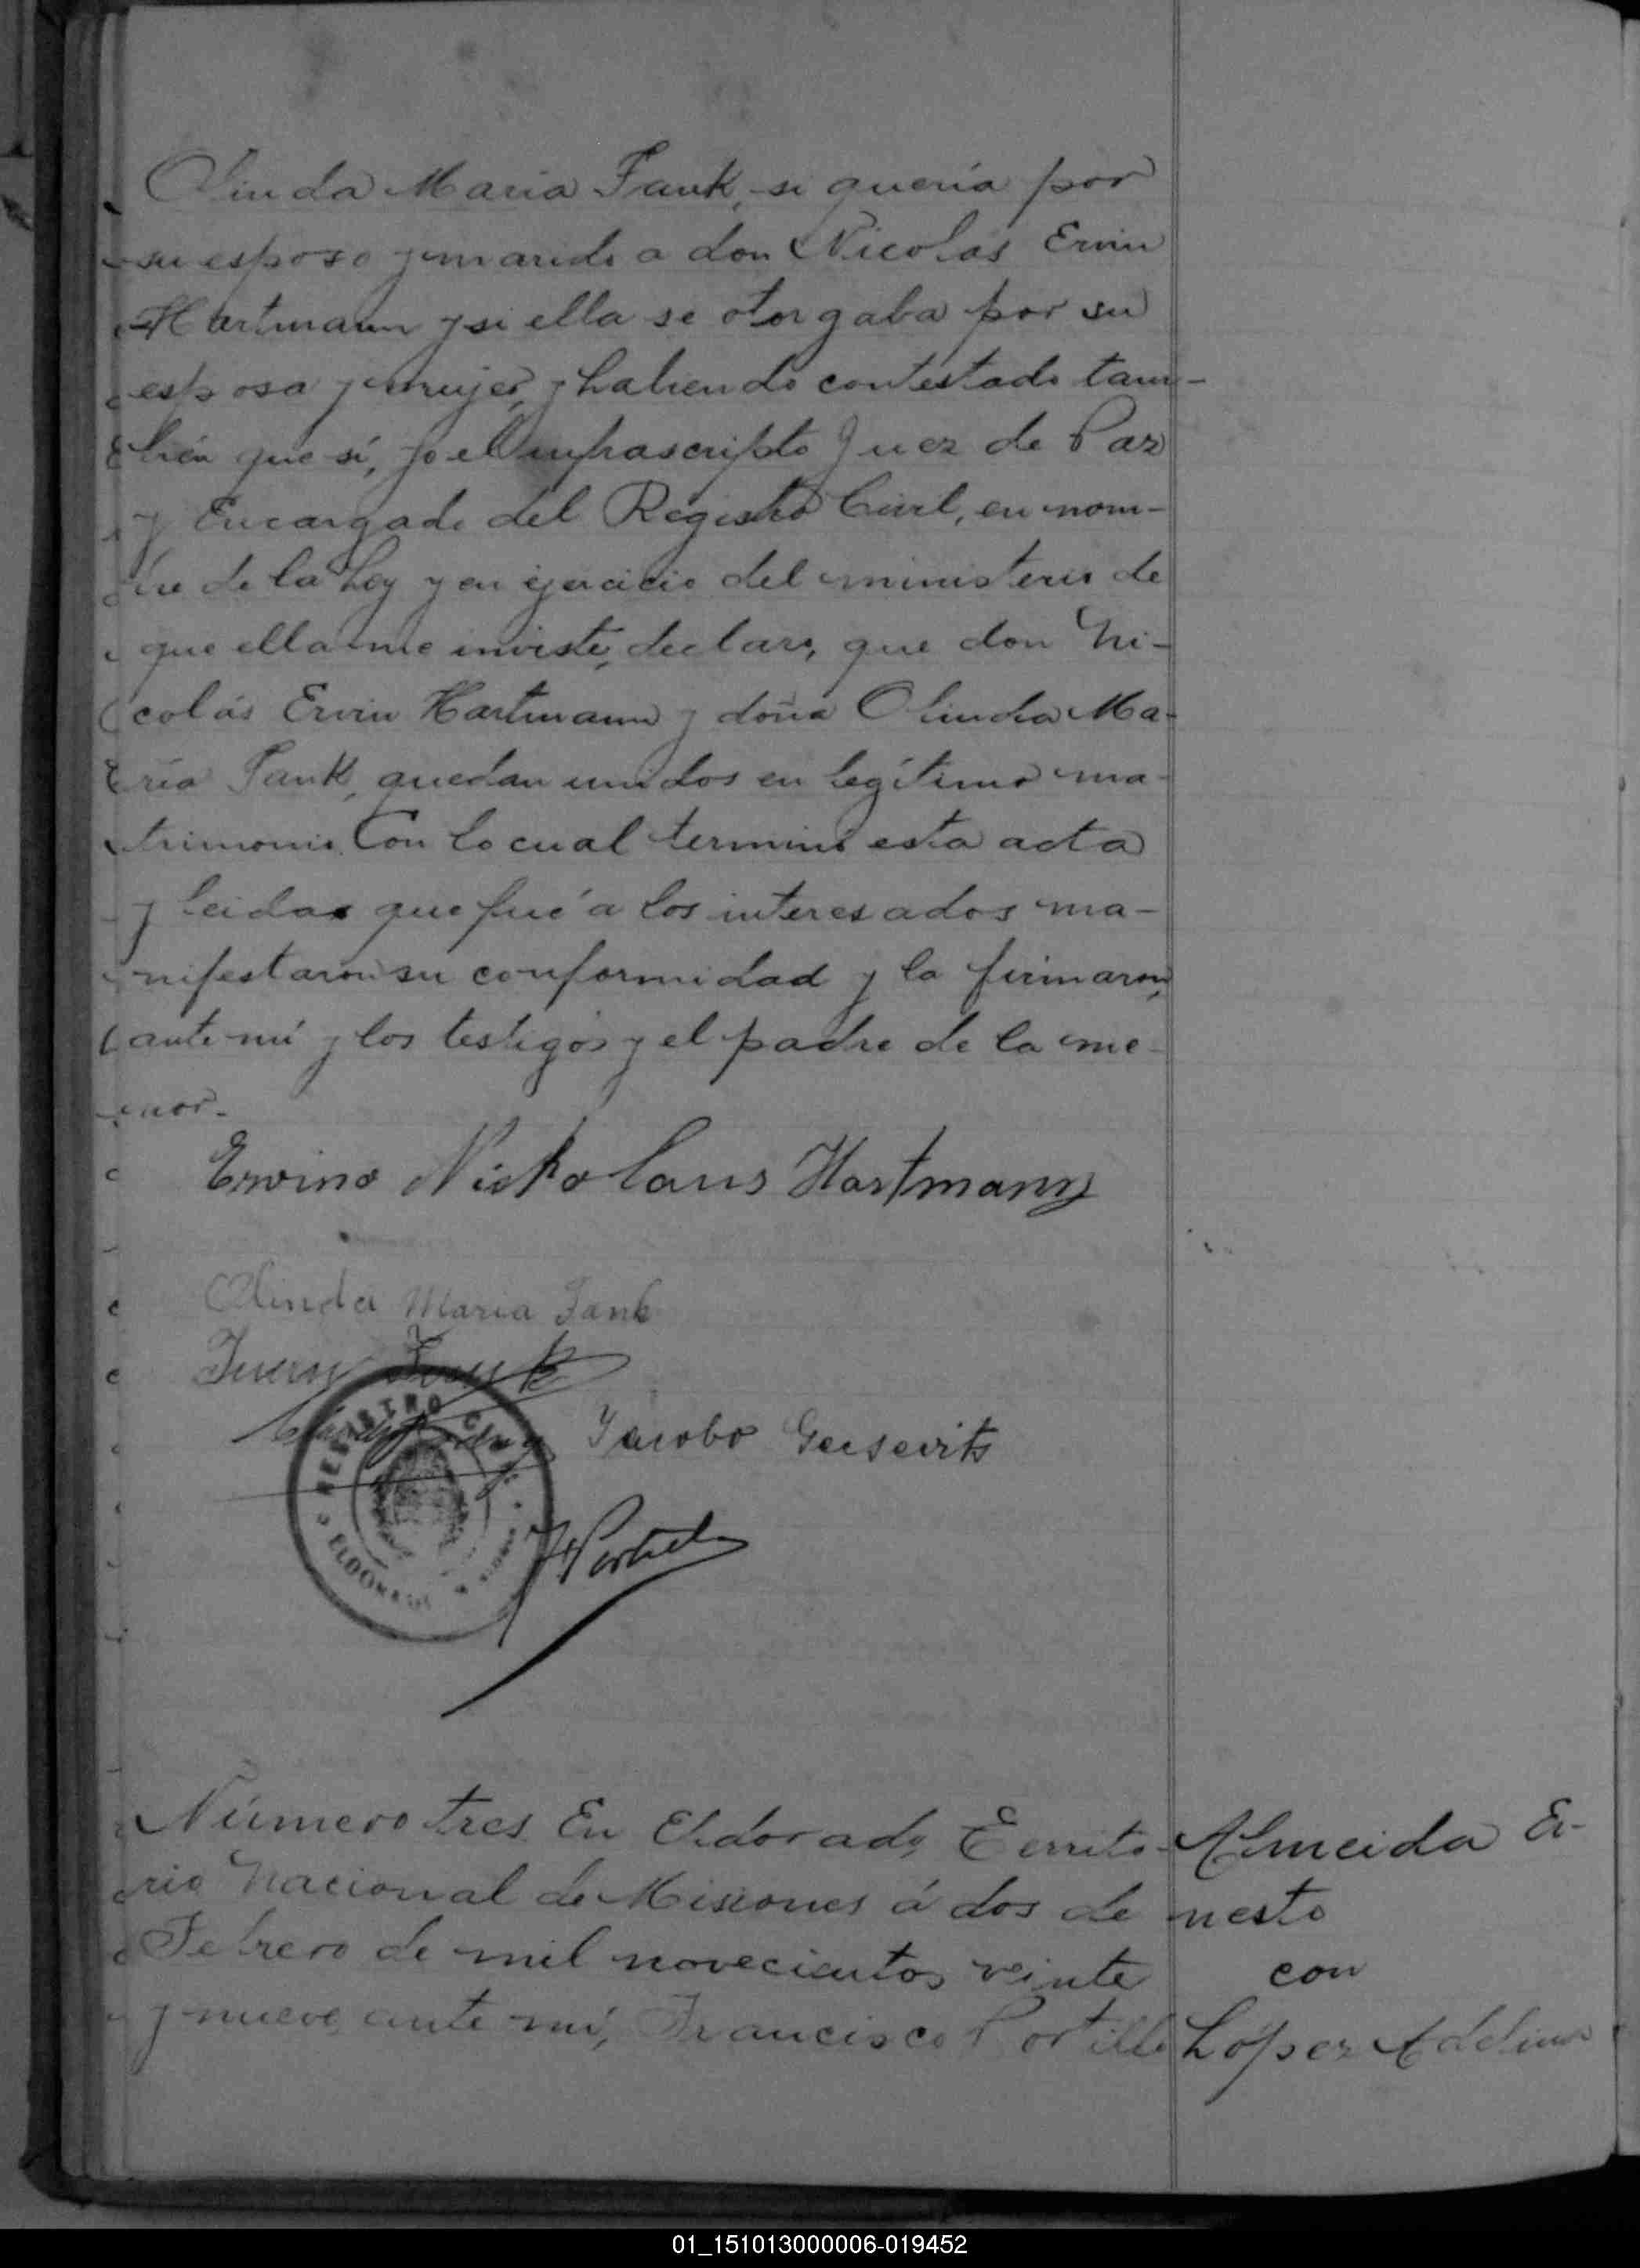 Olinda Maria Fank, si quería por
su esposo y marido a don Nicolás Ervin
Hartmann y si ella se otorgaba por su
esposa y mujer, y habiendo contestado tam-
bién que sí, yo el infrascripto Juez de Paz
y Encargado del Registro Civil, en nom-
bre de la Ley y en ejercicio del ministerio de
que ella me inviste, declaro, que don Ni-
colás Ervin Hartmann y doña Olinda Ma-
ría Fank, quedan unidos en legítimo ma-
trimonio. Con lo cual terminó esta acta
y leida que fué a los interesados ma-
nifestaron su conformidad y la firmaron,
ante mí y los testigos y el padre de la me-
nor.
Ervino Nickolaus Hartmann
Olinda Maria Fank
Juan Fank
Jacobo
REGISTRO CIVIL
ELDORADO
F Portillo
Número tres. En Eldorado, Territo-
rio Nacional de Misiones á dos de
Febrero de mil novecientos veinte
y nueve, ante mí, Francisco Portillo
Almeida Er-
nesto
con
López Adelina
01_151013000006-019452